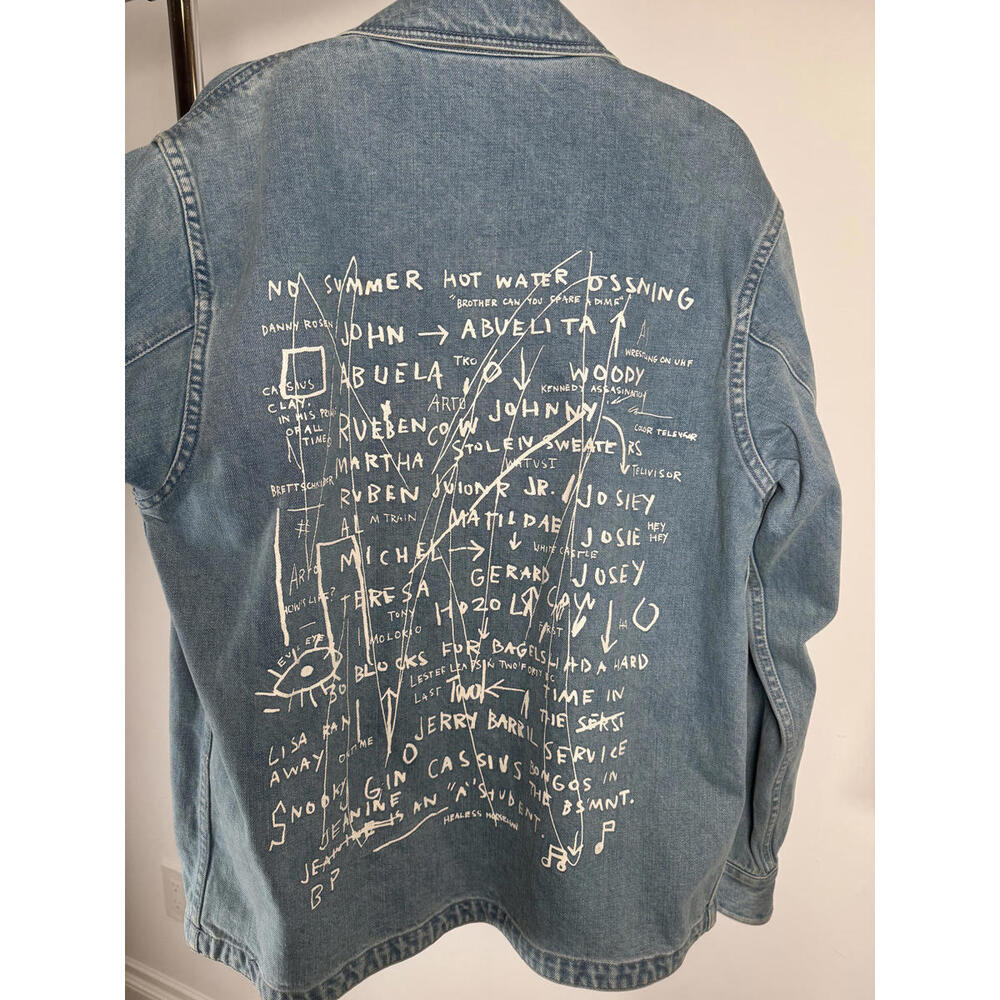 NO SUMMER HOT WATER OSSNING
"BROTHER CAN YOU SPARE A DIME"
DANNY ROSEN JOHN → ABUELITA
WRESTLING ON UHF
ABUELA TKO WOODY
CASSIUS KENNEDY ASSASINATION
CLAY. ARTO JOHNNY
IN HIS PRIME
OF ALL RUEBEN COW COLOR TELEVISOR
TIME STOLEN SWEATERS
MARTHA WATUSI TELIVISOR
BRETT SCHNEIDER RUBEN JUIONR JR. JOSIEY
# AL M TRAIN MATILDAE JOSIE HEY
HEY
MICHEL → WHITE CASTLE
ARTO GERARD JOSEY
HOW'S LIFE? TERESA HOZO LA COW
TONY FIRST
MOLOKIO
EVIL EYE BLOCKS FOR BAGELS HAD A HARD
LESTER LEAPS IN
LAST TWO ← TIME IN
JERRY THE
LISA RAN SERVICE
AWAY CASSIUS BONGOS IN
SNOOKY GIN THE BSMNT.
JEANINE IS AN "A" STUDENT.
BP